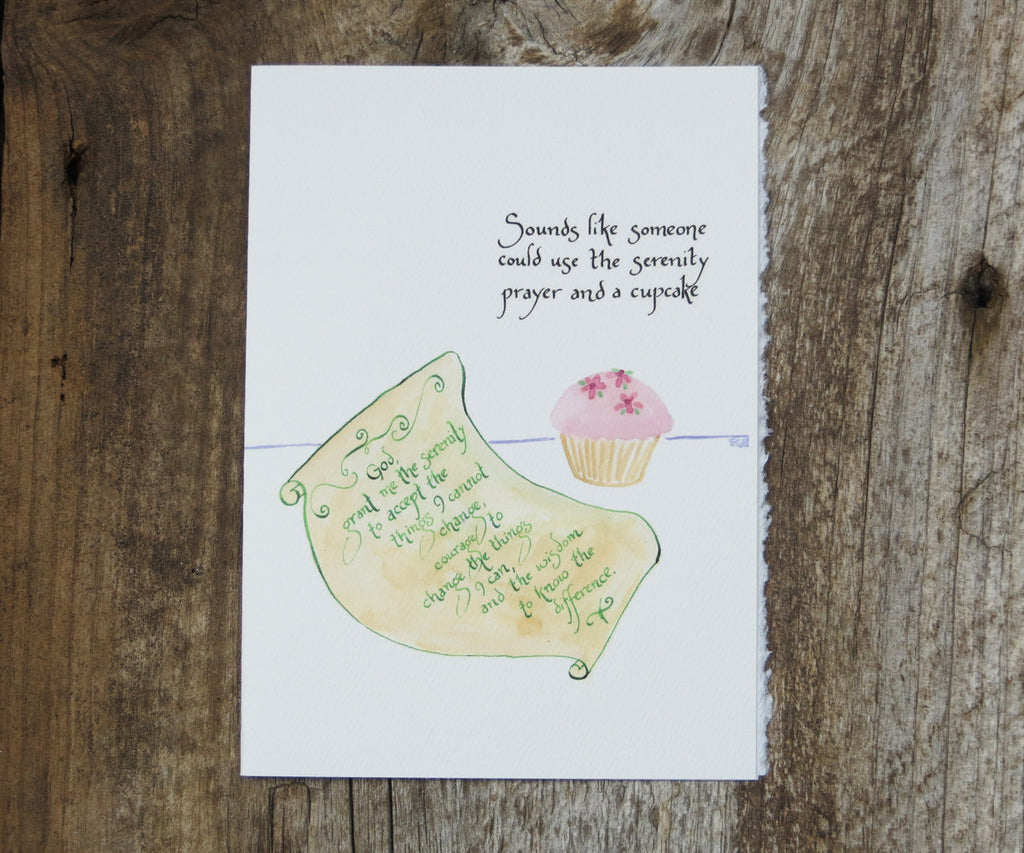 Sounds like someone
could use the serenity
prayer and a cupcake
God,
grant me the serenity
to accept the
things I cannot
change,
courage to
change the things
I can,
and the wisdom
to know the
difference.
EGB